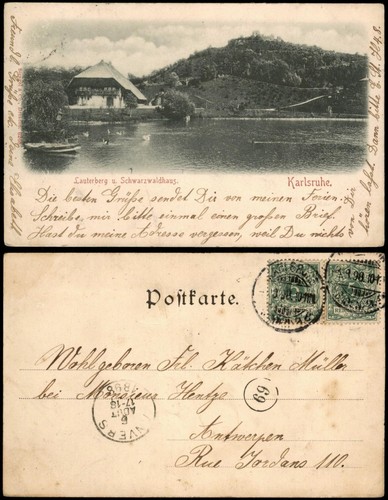 Lauterberg u. Schwarzwaldhaus.
Karlsruhe.
Die besten Grüße sendet Dir von meinen Ferien.
Schreibe, mir, bitte einmal einen großen Brief.
Hast du meine Adresse vergessen, weil Du nichts
von Dir
hören läßt. Dann bitte
Postkarte.
Wohlgeboren Frl. Kätchen Müller
bei Monsieur Hentzs
Antwerpen
Rue Jordans 110.
69
ANVERS
6
AOUT
17-18
1898